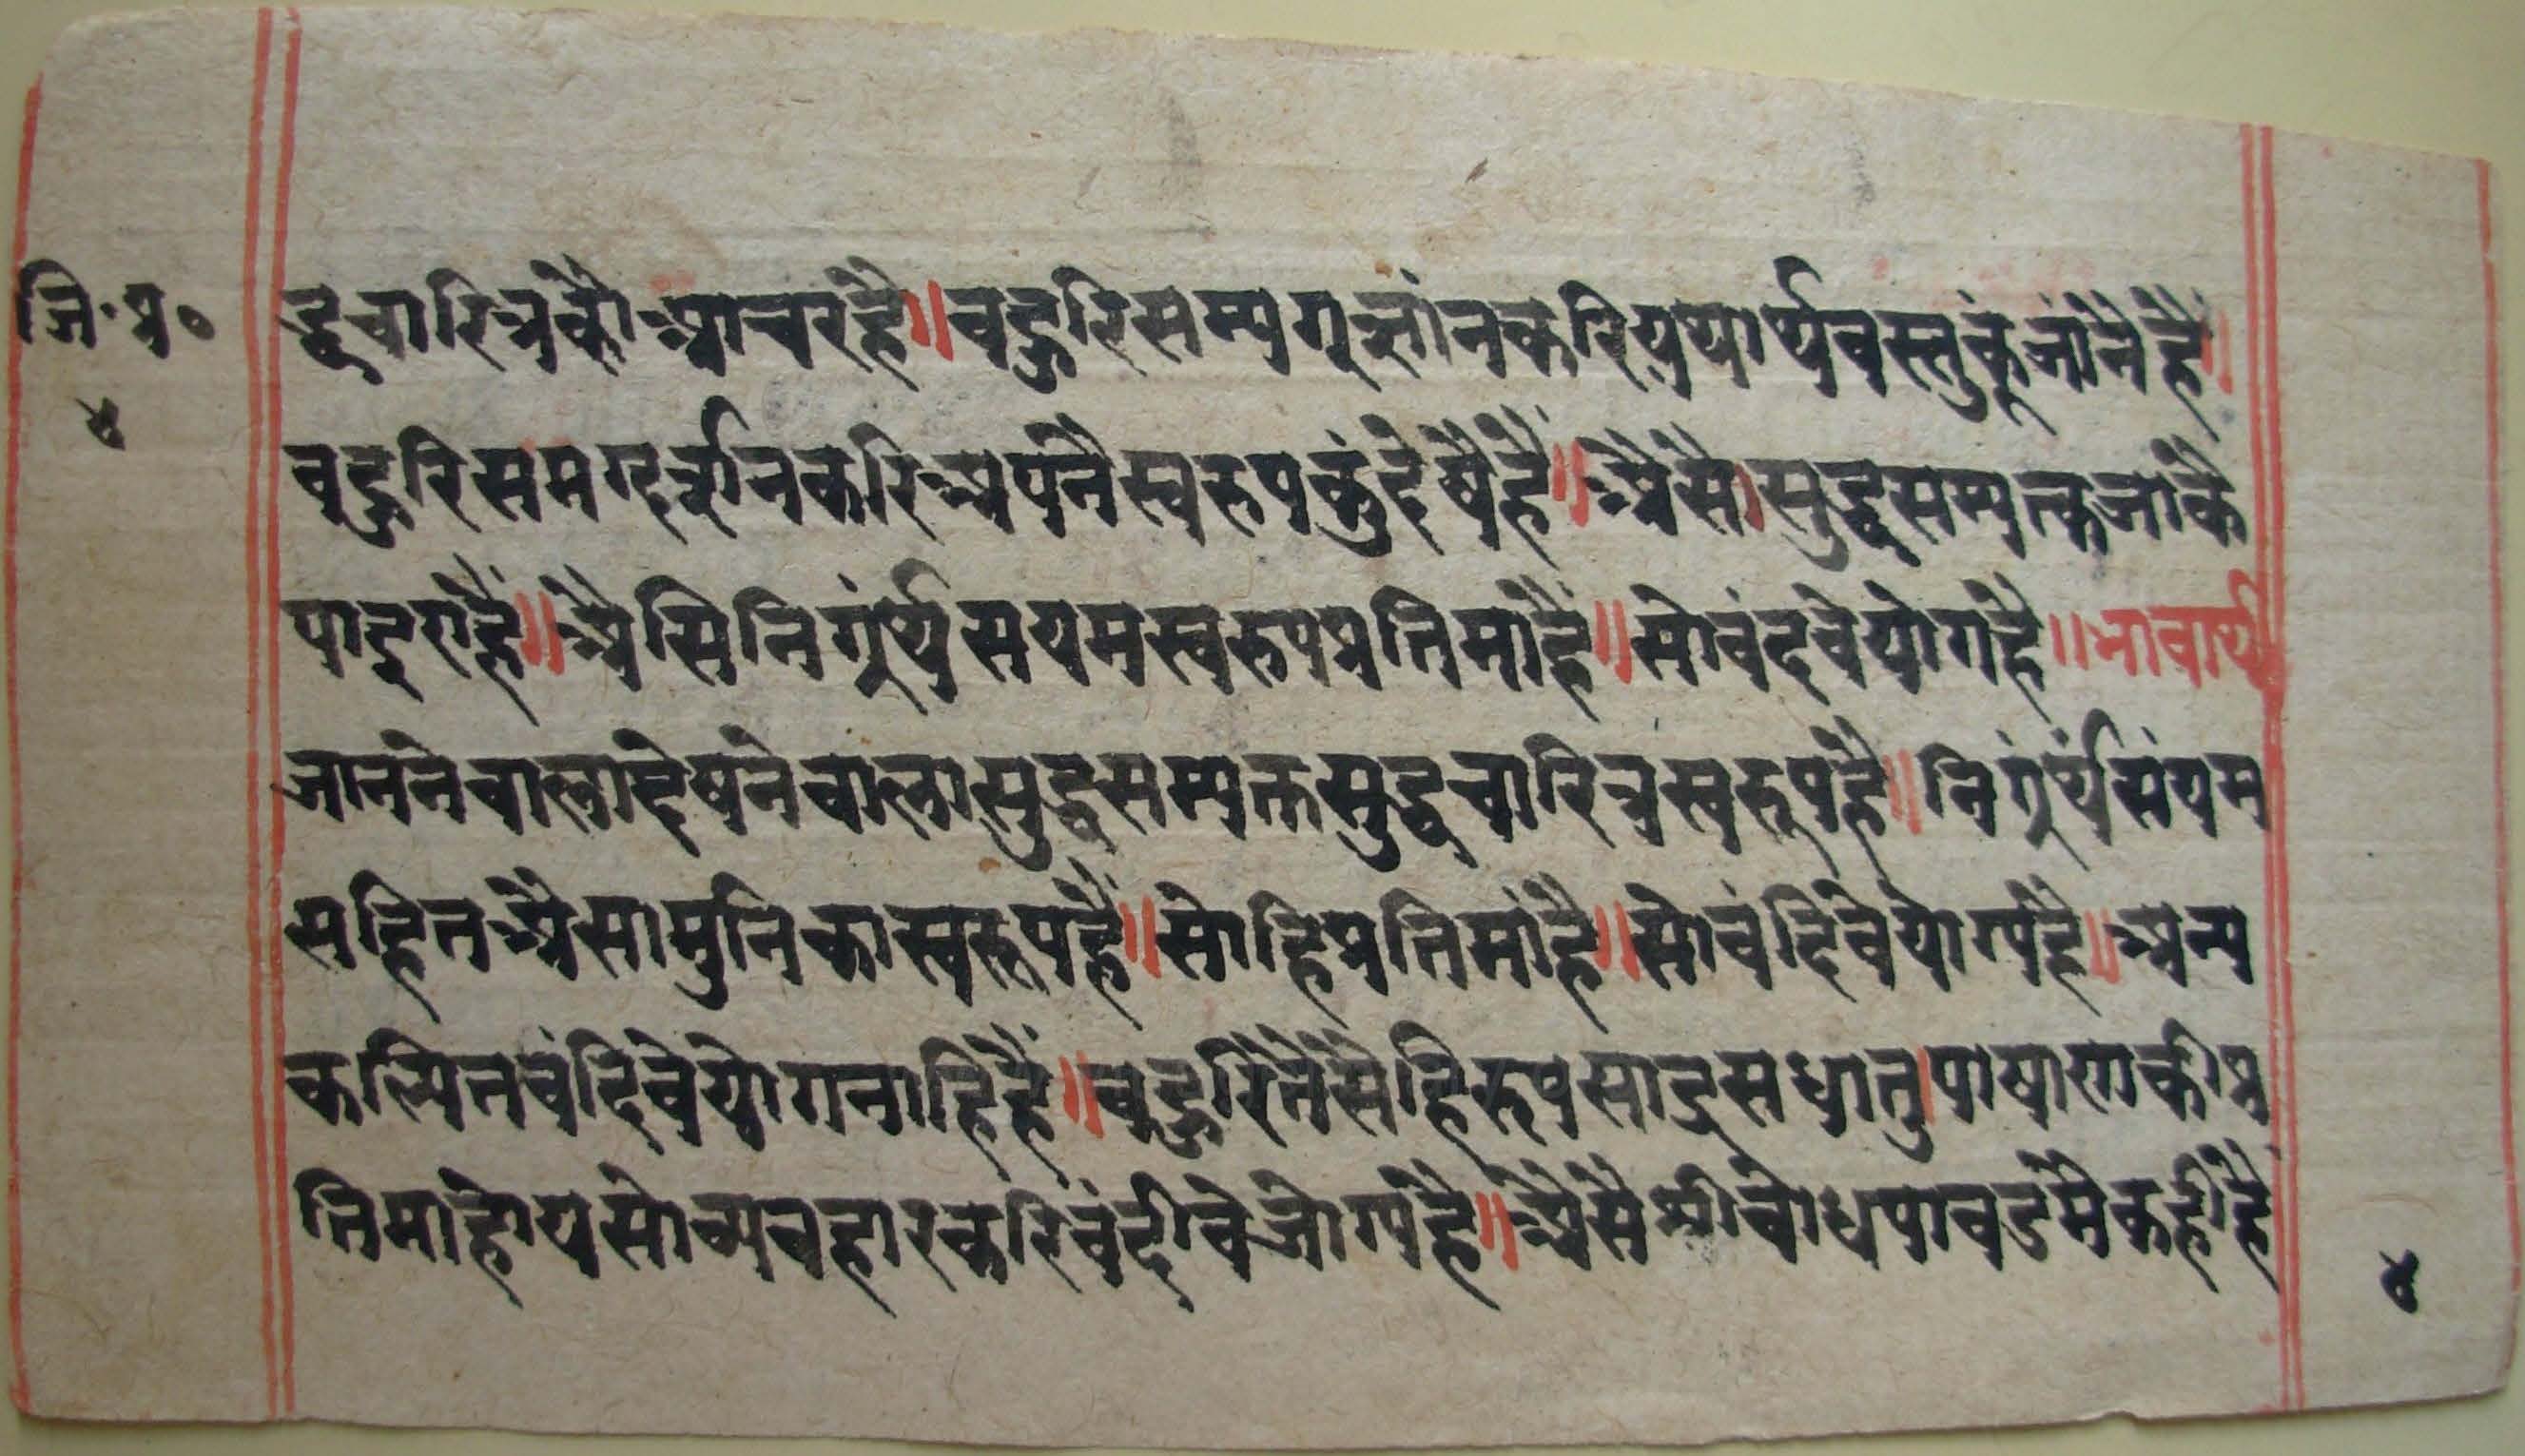 जि॰ प्र॰
४
द्धचारित्रकौ आचरहै॥ वहुरिसम्यग्ज्ञांनकरियथार्थवस्तुकूंजांनैहैं॥
वहुरिसंमग्दर्शनकरिअपनैंस्वरुपकुंदेषैहैं॥ अैसै।सुद्धसम्यत्कजांकै
पाइएहैं॥ अैसिनिग्रंर्थसयमस्वरुपप्रतिमांहै॥ सोवंदवेयोगहै॥ भावार्थ
जाननेवालादेषनेवालासुद्धसम्यक्तसुद्धचारित्रस्वरूपहै॥ निग्रंर्थसंयम
सहितअैसामुनिकास्वरूपहै॥ सोहिप्रतिमांहै॥ सोवंदिवेयोग्यहै॥ अन्य
कल्पितवंदिवेयोगनाहिहैं॥ वहुरितैसैंहिरुपसाइसधातु।पाषाणकीप्र
तिमाहोयसोव्यवहारकरिवंदीवेजोग्यहै॥ अैसैश्रीवोधपावडमैंकहीहैं
४